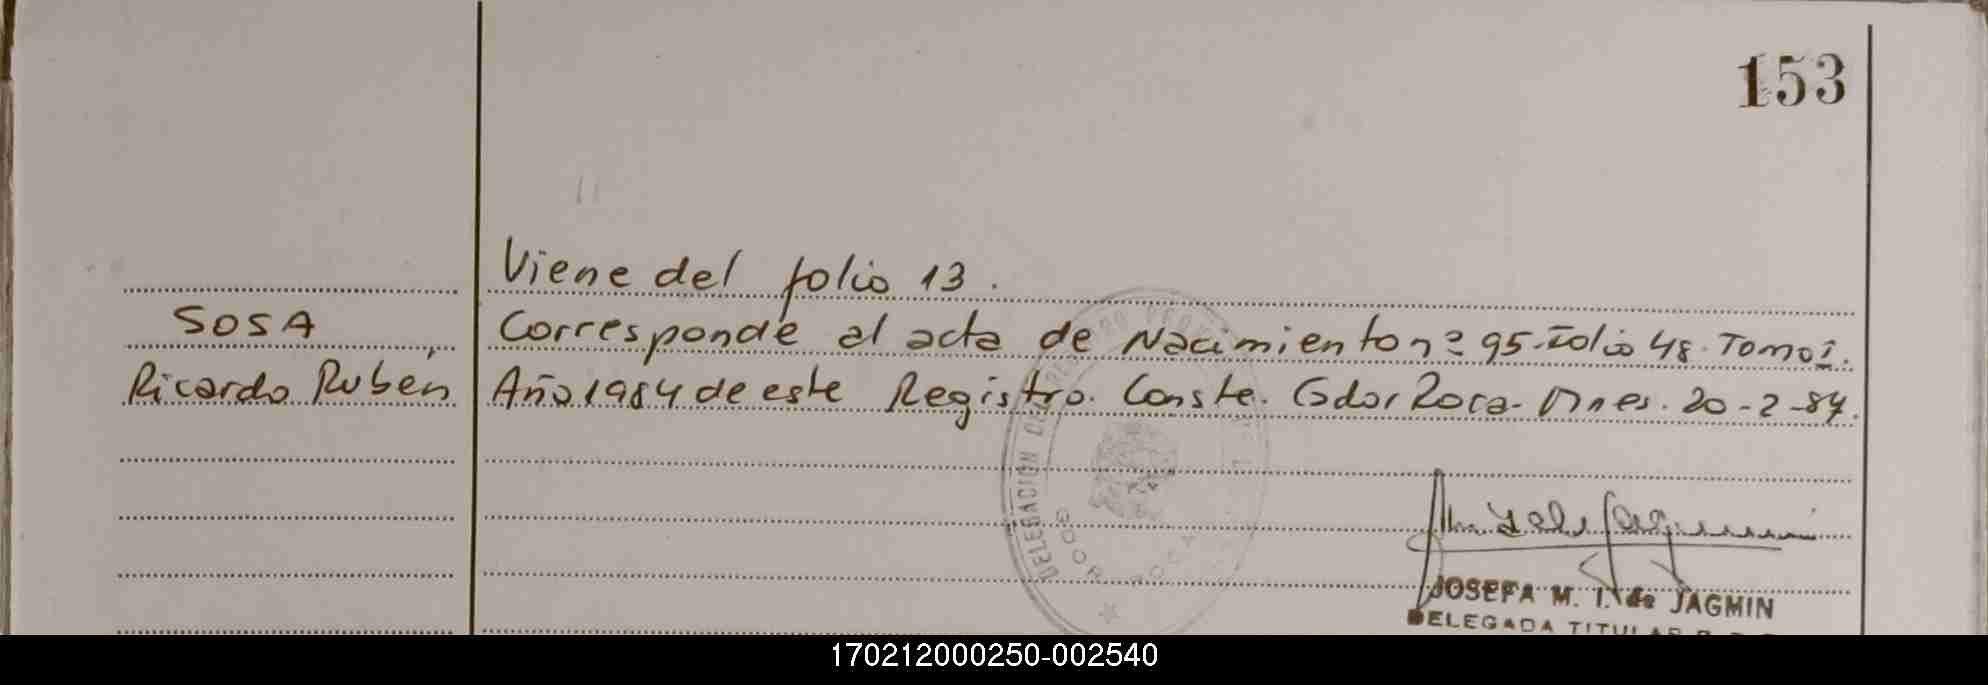 153
Viene del folio 13.
SOSA
Corresponde al acta de Nacimiento nº 95-Folio 48. Tomo I.
Ricardo Rubén
Año 1984 de este Registro. Conste. Gdor Roca- Mnes. 20-2-84.
DELEGACION
GDOR ROCA
JOSEFA M. I. de JAGMIN
DELEGADA TITULAR
170212000250-002540